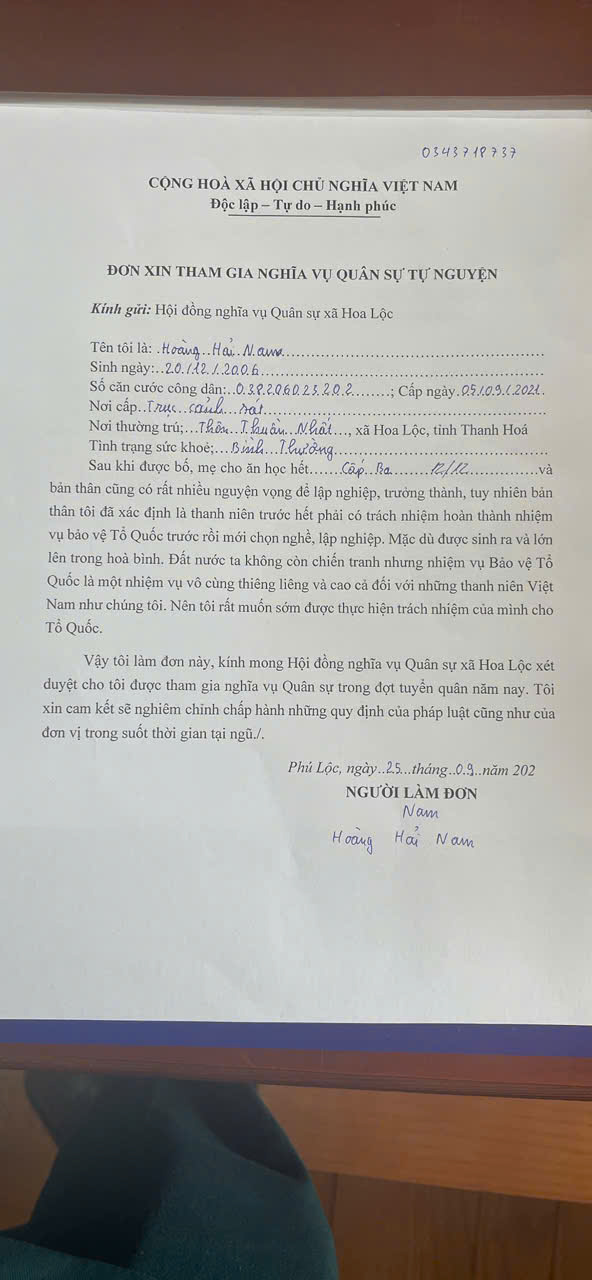 0343718737
CỘNG HOÀ XÃ HỘI CHỦ NGHĨA VIỆT NAM
Độc lập – Tự do – Hạnh phúc
ĐƠN XIN THAM GIA NGHĨA VỤ QUÂN SỰ TỰ NGUYỆN
Kính gửi: Hội đồng nghĩa vụ Quân sự xã Hoa Lộc
Tên tôi là: Hoàng Hải Nam
Sinh ngày: 20/12/2006
Số căn cước công dân: 038206023202; Cấp ngày 05/09/2021
Nơi cấp Trục cảnh sát
Nơi thường trú; Thôn Thuần Nhất, xã Hoa Lộc, tỉnh Thanh Hoá
Tình trạng sức khoẻ; Bình Thường
Sau khi được bố, mẹ cho ăn học hết Cấp Ba 12/12 và
bản thân cũng có rất nhiều nguyện vọng để lập nghiệp, trưởng thành, tuy nhiên bản
thân tôi đã xác định là thanh niên trước hết phải có trách nhiệm hoàn thành nhiệm
vụ bảo vệ Tổ Quốc trước rồi mới chọn nghề, lập nghiệp. Mặc dù được sinh ra và lớn
lên trong hoà bình. Đất nước ta không còn chiến tranh nhưng nhiệm vụ Bảo vệ Tổ
Quốc là một nhiệm vụ vô cùng thiêng liêng và cao cả đối với những thanh niên Việt
Nam như chúng tôi. Nên tôi rất muốn sớm được thực hiện trách nhiệm của mình cho
Tổ Quốc.
Vậy tôi làm đơn này, kính mong Hội đồng nghĩa vụ Quân sự xã Hoa Lộc xét
duyệt cho tôi được tham gia nghĩa vụ Quân sự trong đợt tuyển quân năm nay. Tôi
xin cam kết sẽ nghiêm chỉnh chấp hành những quy định của pháp luật cũng như của
đơn vị trong suốt thời gian tại ngũ./.
Phú Lộc, ngày 25 tháng 09 năm 202
NGƯỜI LÀM ĐƠN
Nam
Hoàng Hải Nam